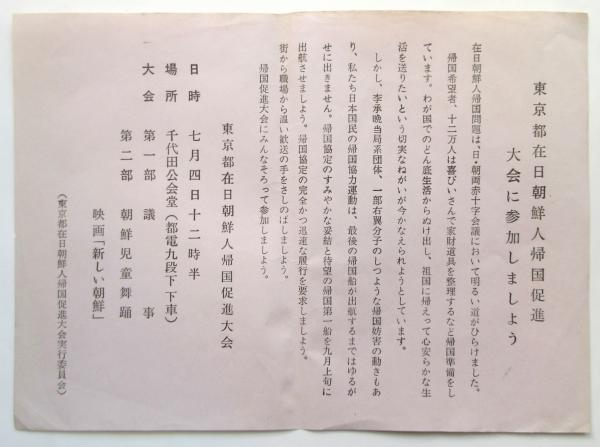 東京都在日朝鮮人帰国促進
大会に参加しましよう
在日朝鮮人帰国問題は、日・朝両赤十字会議において明るい道がひらけました。
帰国希望者、十二万人は喜びいさんで家財道具を整理するなど帰国準備をし
ています。わが国でのどん底生活からぬけ出し、祖国に帰えって心安らかな生
活を送りたいという切実なねがいが今かなえられようとしています。
しかし、李承晩当局系団体、一部右翼分子のしつような帰国妨害の動きもあ
り、私たち日本国民の帰国協力運動は、最後の帰国船が出航するまではゆるが
せに出きません。帰国協定のすみやかな妥結と待望の帰国第一船を九月上旬に
出航させましよう。帰国協定の完全かつ迅速な履行を要求しましょう。
街から職場から温い歓送の手をさしのばしましよう。
帰国促進大会にみんなそろって参加しましよう。
東京都在日朝鮮人帰国促進大会
日時 七月四日十二時半
場所 千代田公会堂(都電九段下下車)
大会 第一部 議事
第二部 朝鮮児童舞踊
映画「新しい朝鮮」
(東京都在日朝鮮人帰国促進大会実行委員会)